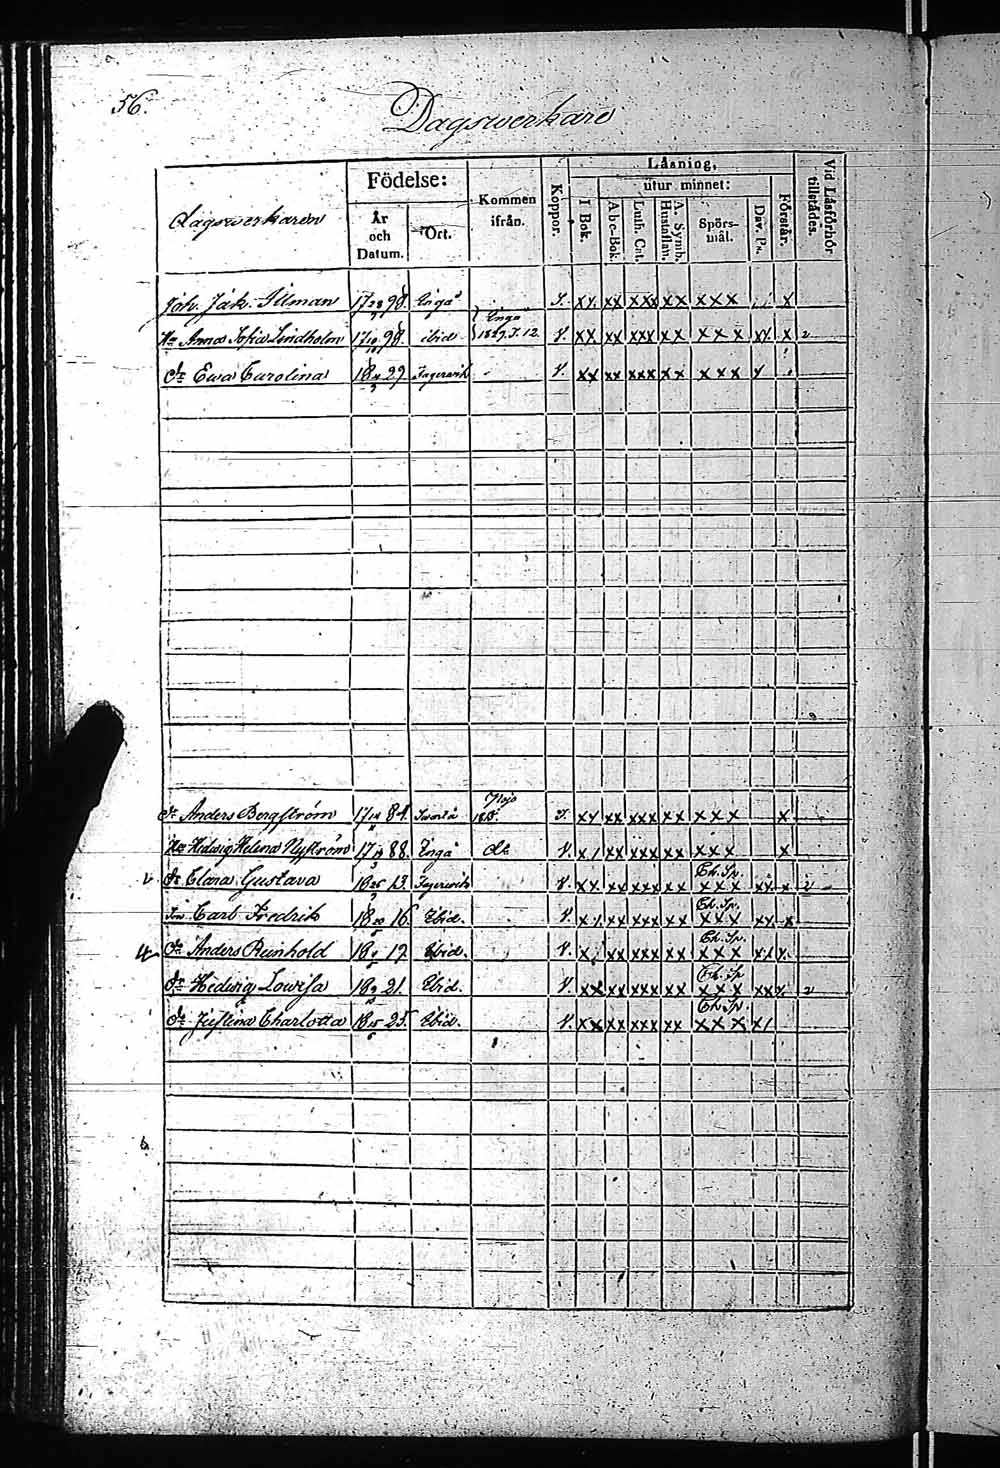 56.
Dagswerkare
Dagswerkaren
Födelse:
År och Datum.
Ort.
Kommen ifrån.
Koppor.
Läsning,
I Bok.
utur minnet:
Abc-Bok.
Luth. Cat.
A. Symb. Hustaflan.
Spörs-mål.
Dav. Ps.
Förstår.
Vid Läsförhör tillstädes.
Joh. Jak. Illman 17 28 98. Ingå xx xx xxx xx xxx x
Hu Anna Sofia Lindholm 17 98. ibid Ingå 1829. I. 12. V. xx xx xxx xx xxx xx x 2
Dr Ewa Carolina 18 29 Fagervik V. xx xx xxx xx xxx
Dr Anders Bergström 17 84. xx xxx xx xxx x
Hu Hedwig Helena Nyström 17 88. Ingå Do V. x/ xx xxx xx xxx x
Dr Elena Gustava 18 13. Fagervik V. xx xx xxx xx Ch. Sp. xxx xx x 2
Son Carl Fredrik 18 16. Ibid. V. x/ xx xxx xx Ch. Sp. xxx xx x
Anders Reinhold 18 19. Ibid. V. xx xxx xx Ch. Sp. xxx
Dr Hedwig Lowisa 18 21. Ibid. V. xx xx xxx xx Ch. Sp xxx xx x 2
Dr Justina Charlotta 18 25. Ibid. V. xx xx xxx xx Ch. Sp. xxx x/